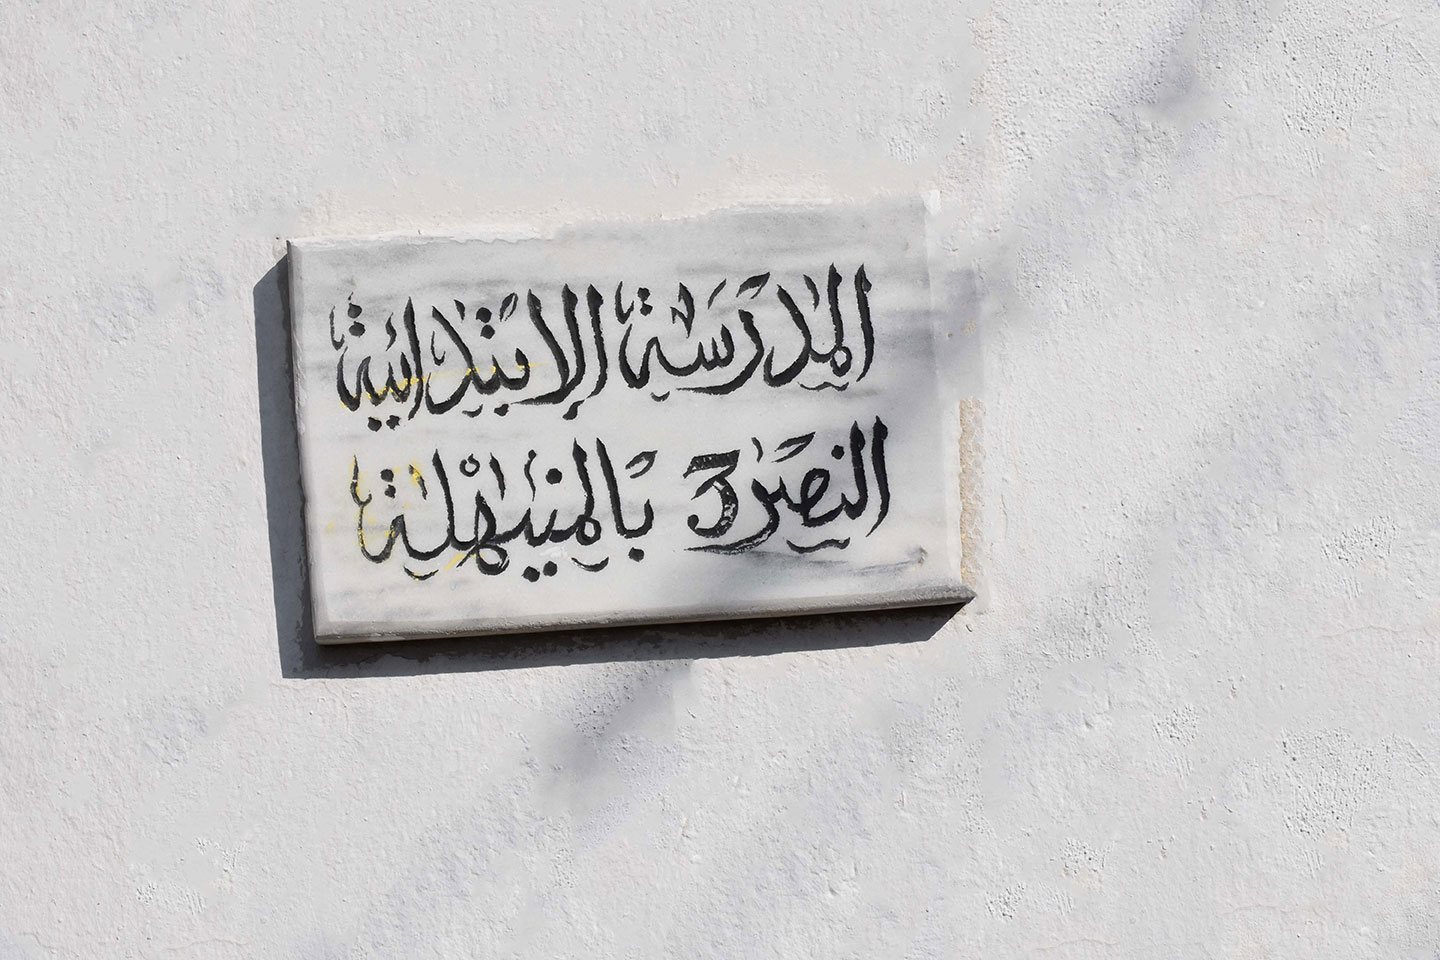 المدرسة الإبتدائية
النصر 3 بالمنيهلة